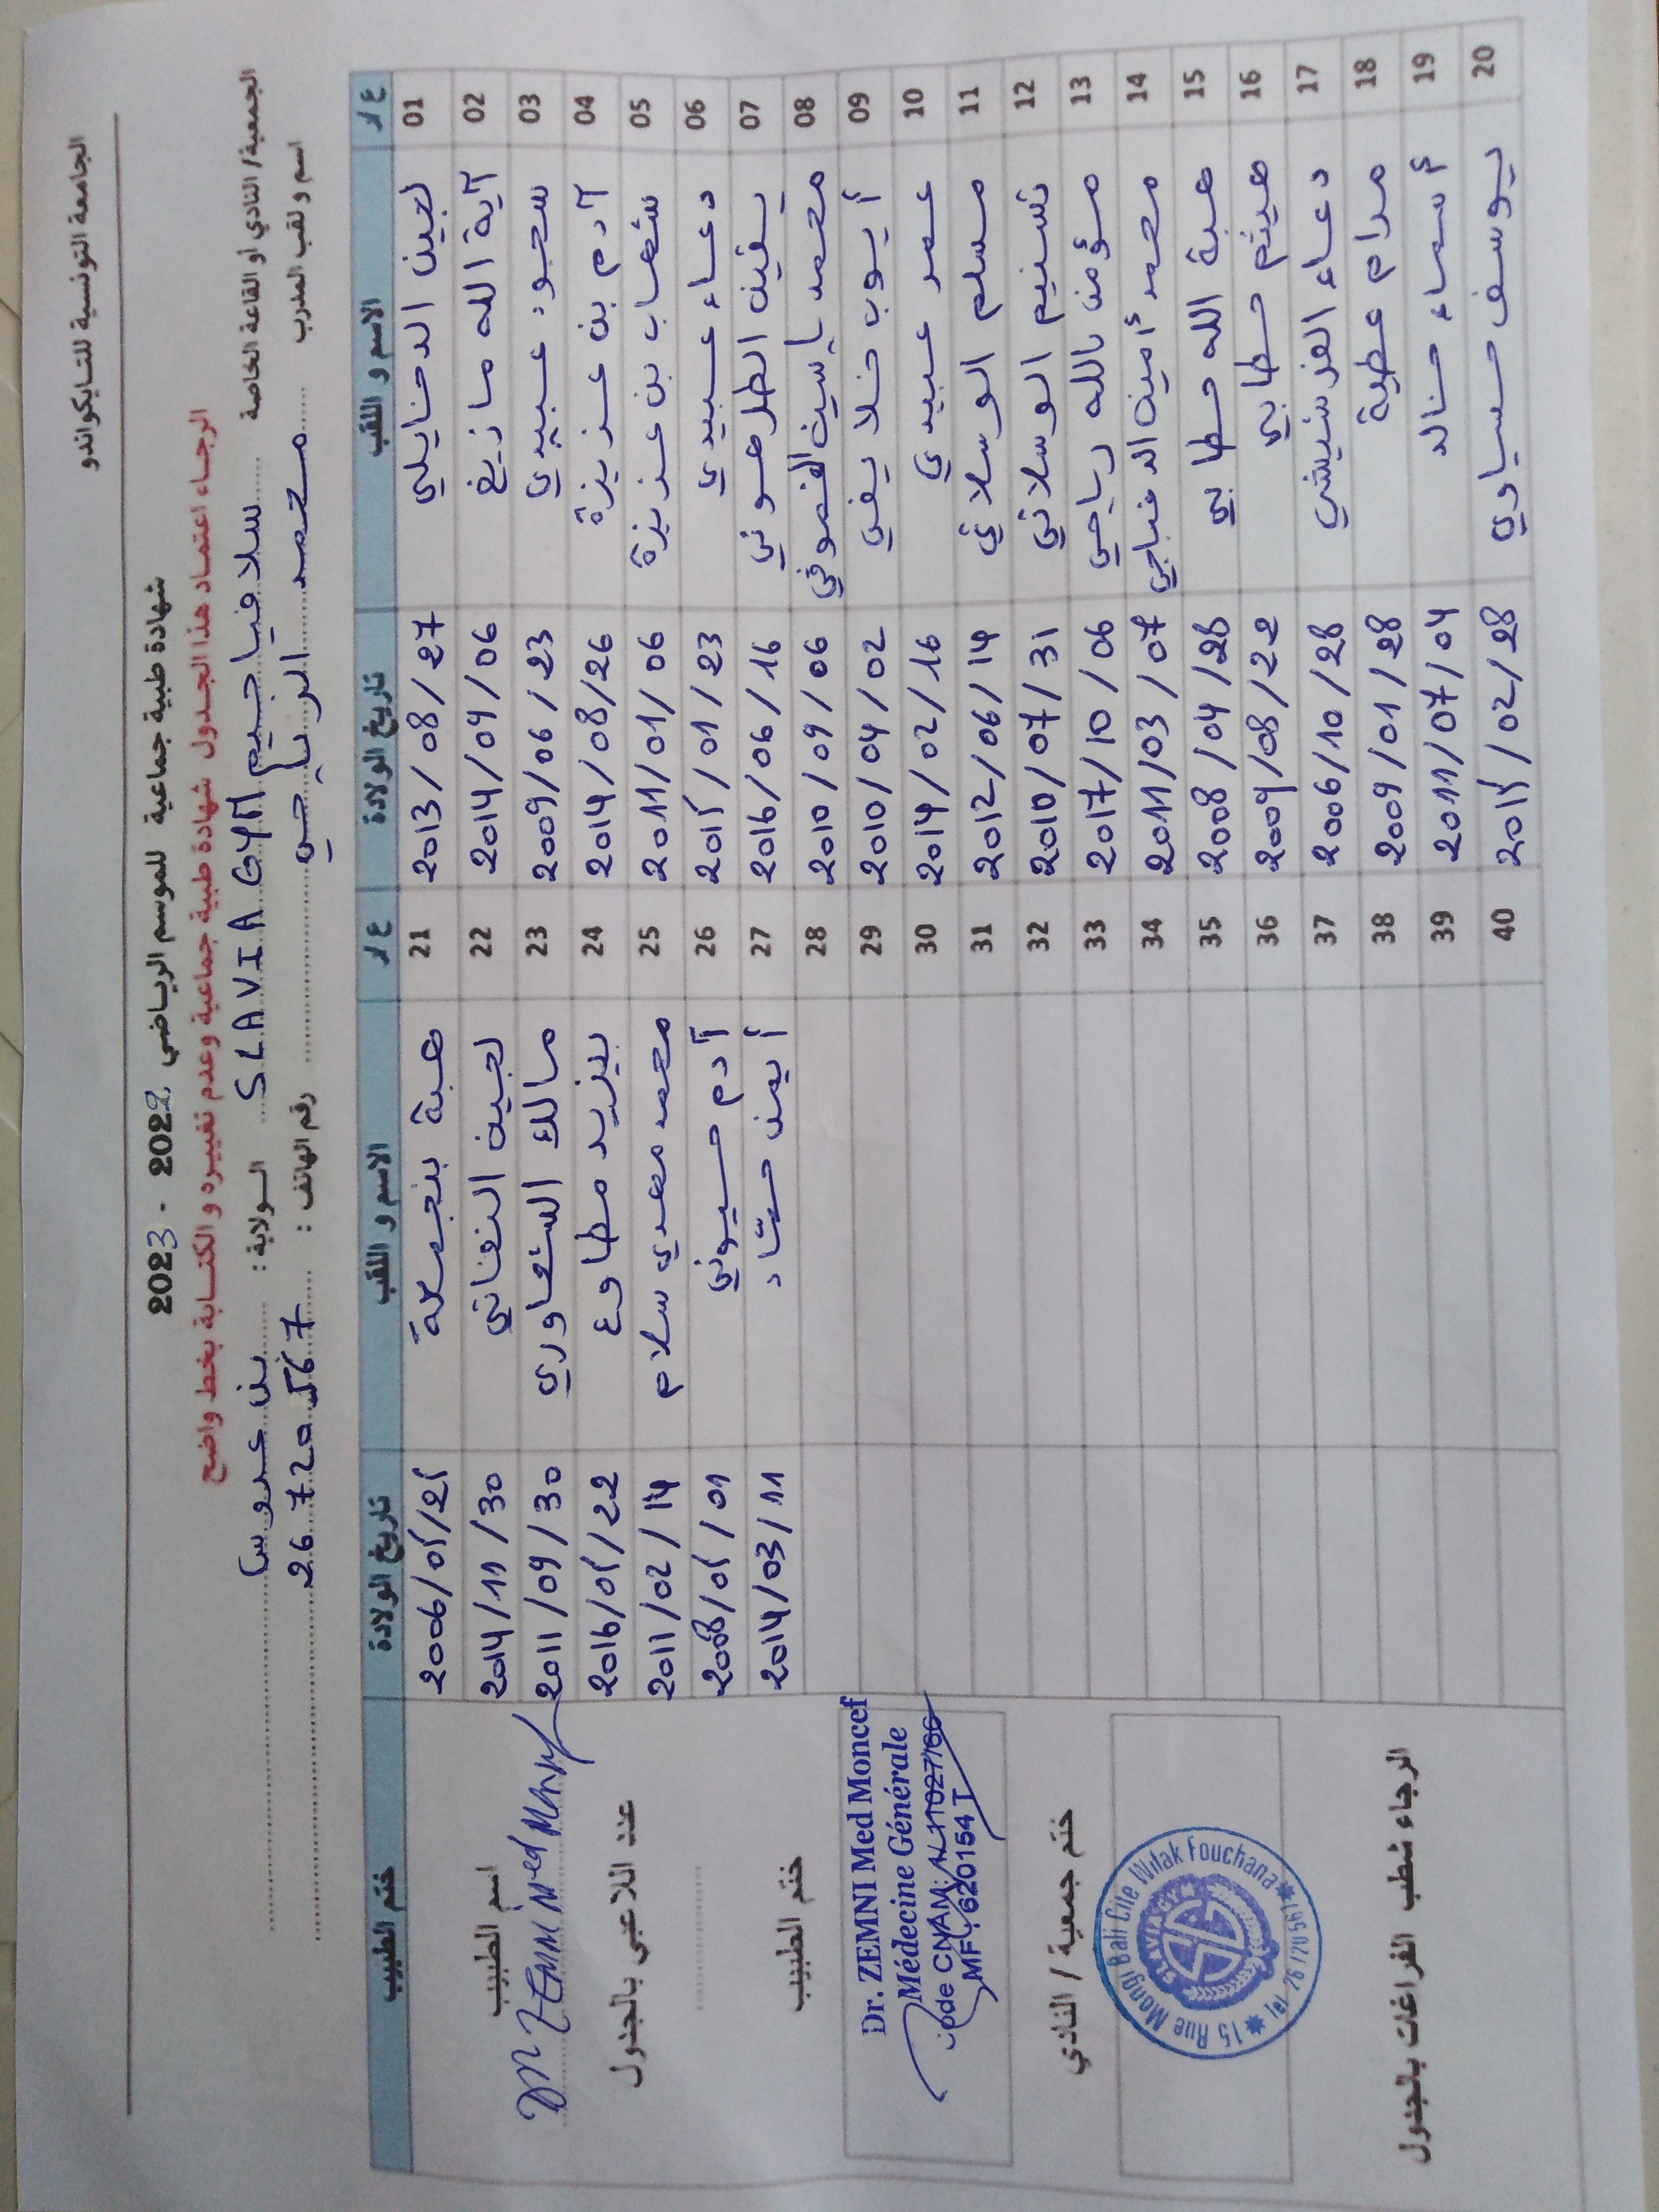 الجامعة التونسية للتايكواندو
شهادة طبية جماعية للموسم الرياضي 2022 - 2023
الرجاء اعتماد هذا الجدول شهادة طبية جماعية وعدم تغييره و الكتابة بخط واضح
الجمعية/ النادي أو القاعة الخاصة سلافيا جيم SLAVIA GYM الولاية : بن عروس
اسم و لقب المدرب محمد الرياحي رقم الهاتف : 26 720 567
ع/ر الاسم و اللقب تاريخ الولادة ع/ر الاسم و اللقب تاريخ الولادة ختم الطبيب
01 لجين الدخايلي 2013/08/27 21 هبة بنجمعة 2006/05/25
02 آية الله مازيغ 2014/09/06 22 لجين النفاتي 2014/11/30
03 سجود عبيدي 2009/06/23 23 مالك الشعاوري 2011/09/30
04 آدم بن عزيزة 2014/08/26 24 يزيد مطاوع 2016/05/22
05 شهاب بن عزيزة 2011/01/06 25 محمد مهدي سلام 2011/02/14
06 دعاء عبيدي 2015/01/23 26 آدم حسيوني 2008/05/01
07 يقين الطرهوني 2016/06/16 27 أيمن حشاد 2014/03/11
08 محمد ياسين 2010/09/06 28
09 أيوب خلايفي 2010/04/02 29
10 عمر عبيدي 2014/02/16 30
11 مسلم الوسلاتي 2012/06/14 31
12 تسنيم الوسلاتي 2010/07/31 32
13 مؤمن بالله رياحي 2017/10/06 33
14 محمد أمين 2011/03/07 34
15 هبة الله حطابي 2008/04/28 35
16 هيثم حطابي 2009/08/22 36
17 دعاء الفرشيشي 2006/10/28 37
18 مرام عطية 2009/01/28 38
19 أسماء خالد 2011/07/04 39
20 يوسف حسياوي 2015/02/28 40
اسم الطبيب
Dr Zemni Med
عدد اللاعبي بالجدول
ختم الطبيب
Dr. ZEMNI Med Moncef
Médecine Générale
code CNAM: 
MF: 620154 T
ختم جمعية / النادي
15 Rue Mongi Bali Cite Wifak Fouchana
Tel 26 720 567
SLAVIA GYM
الرجاء شطب الفراغات بالجدول